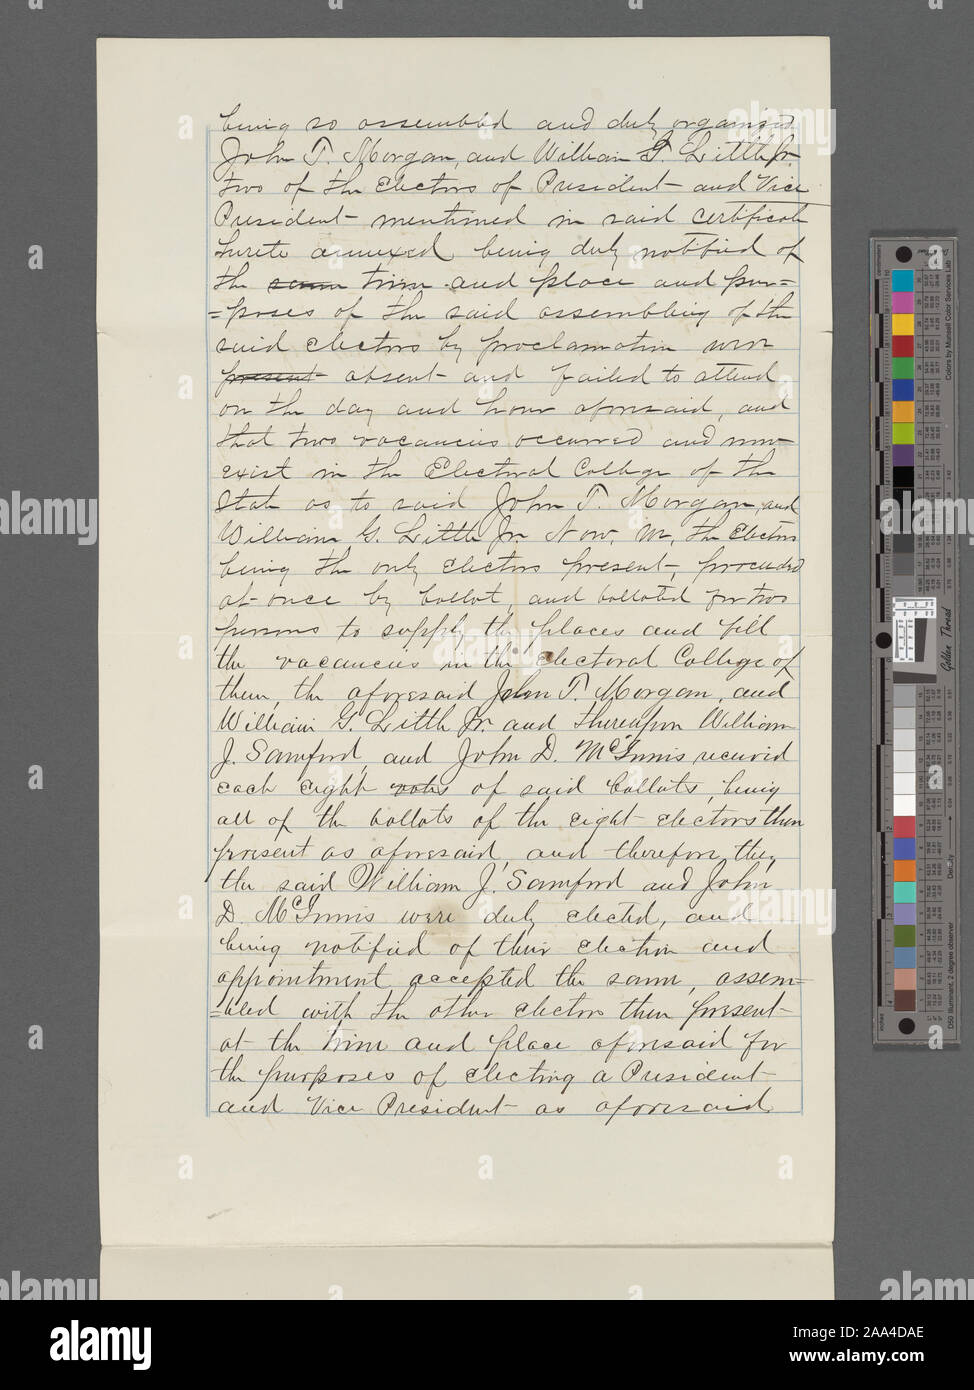 being so assembled and duly organized
John T. Morgan, and William G. Little Jr.
two of the Electors of President and Vice
President mentioned in said certificate
hereto annexed being duly notified of
the same time and place and pur=
=poses of the said assembling of the
said electors by proclamation were
present absent and failed to attend
on the day and hour aforesaid, and
that two vacancies occurred and now
exist in the Electoral College of the
State as to said John T. Morgan, and
William G. Little Jr. Now, we, the Electors
being the only electors present, proceeded
at once by ballot, and balloted for two
persons to supply the places and fill
the vacancies in the Electoral College of
them, the aforesaid John T. Morgan, and
William G. Little Jr. and thereupon William
J. Samford, and John D. McInnis received
each eight votes of said ballots, being
all of the ballots of the eight electors then
present as aforesaid, and therefore they
the said William J. Samford and John
D. McInnis were duly elected, and
being notified of their election and
appointment, accepted the same, assem=
=bled with the other electors then present
at the time and place aforesaid for
the purposes of electing a President
and Vice President as aforesaid
Colors by Munsell Color Services Lab
Golden Thread
Density
D50 Illuminant, 2 degree observer
centimeters
inches
alamy
a
alamy
Image ID: 2AA4DAE
www.alamy.com